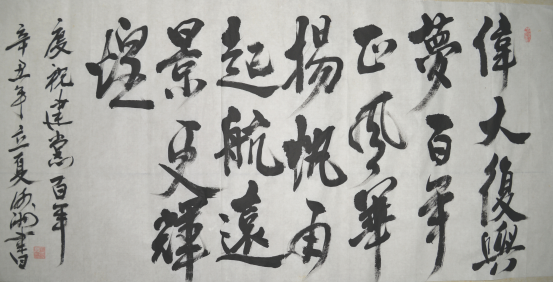 偉大復興
夢百年
正風華
揚帆再
起航遠
景更輝
煌
慶祝建黨百年
辛丑年立夏
書